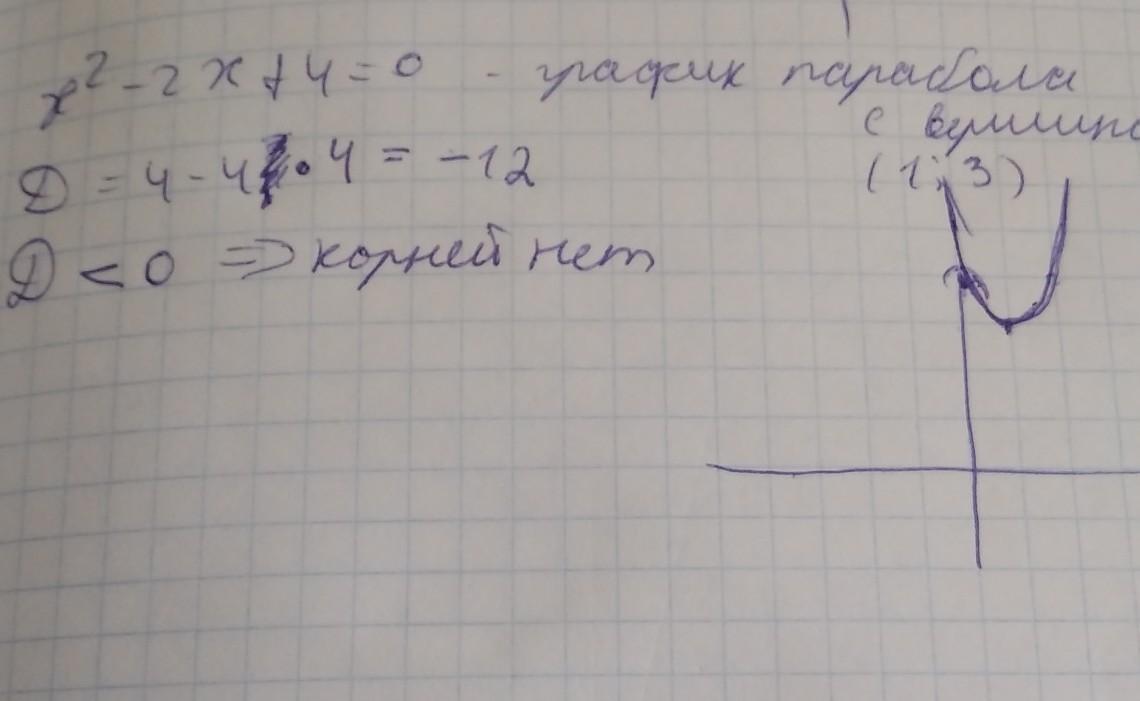 x² - 2x + 4 = 0 - график парабола
с вершино
(1; 3)
D = 4 - 4 · 4 = -12
D < 0 => корней нет